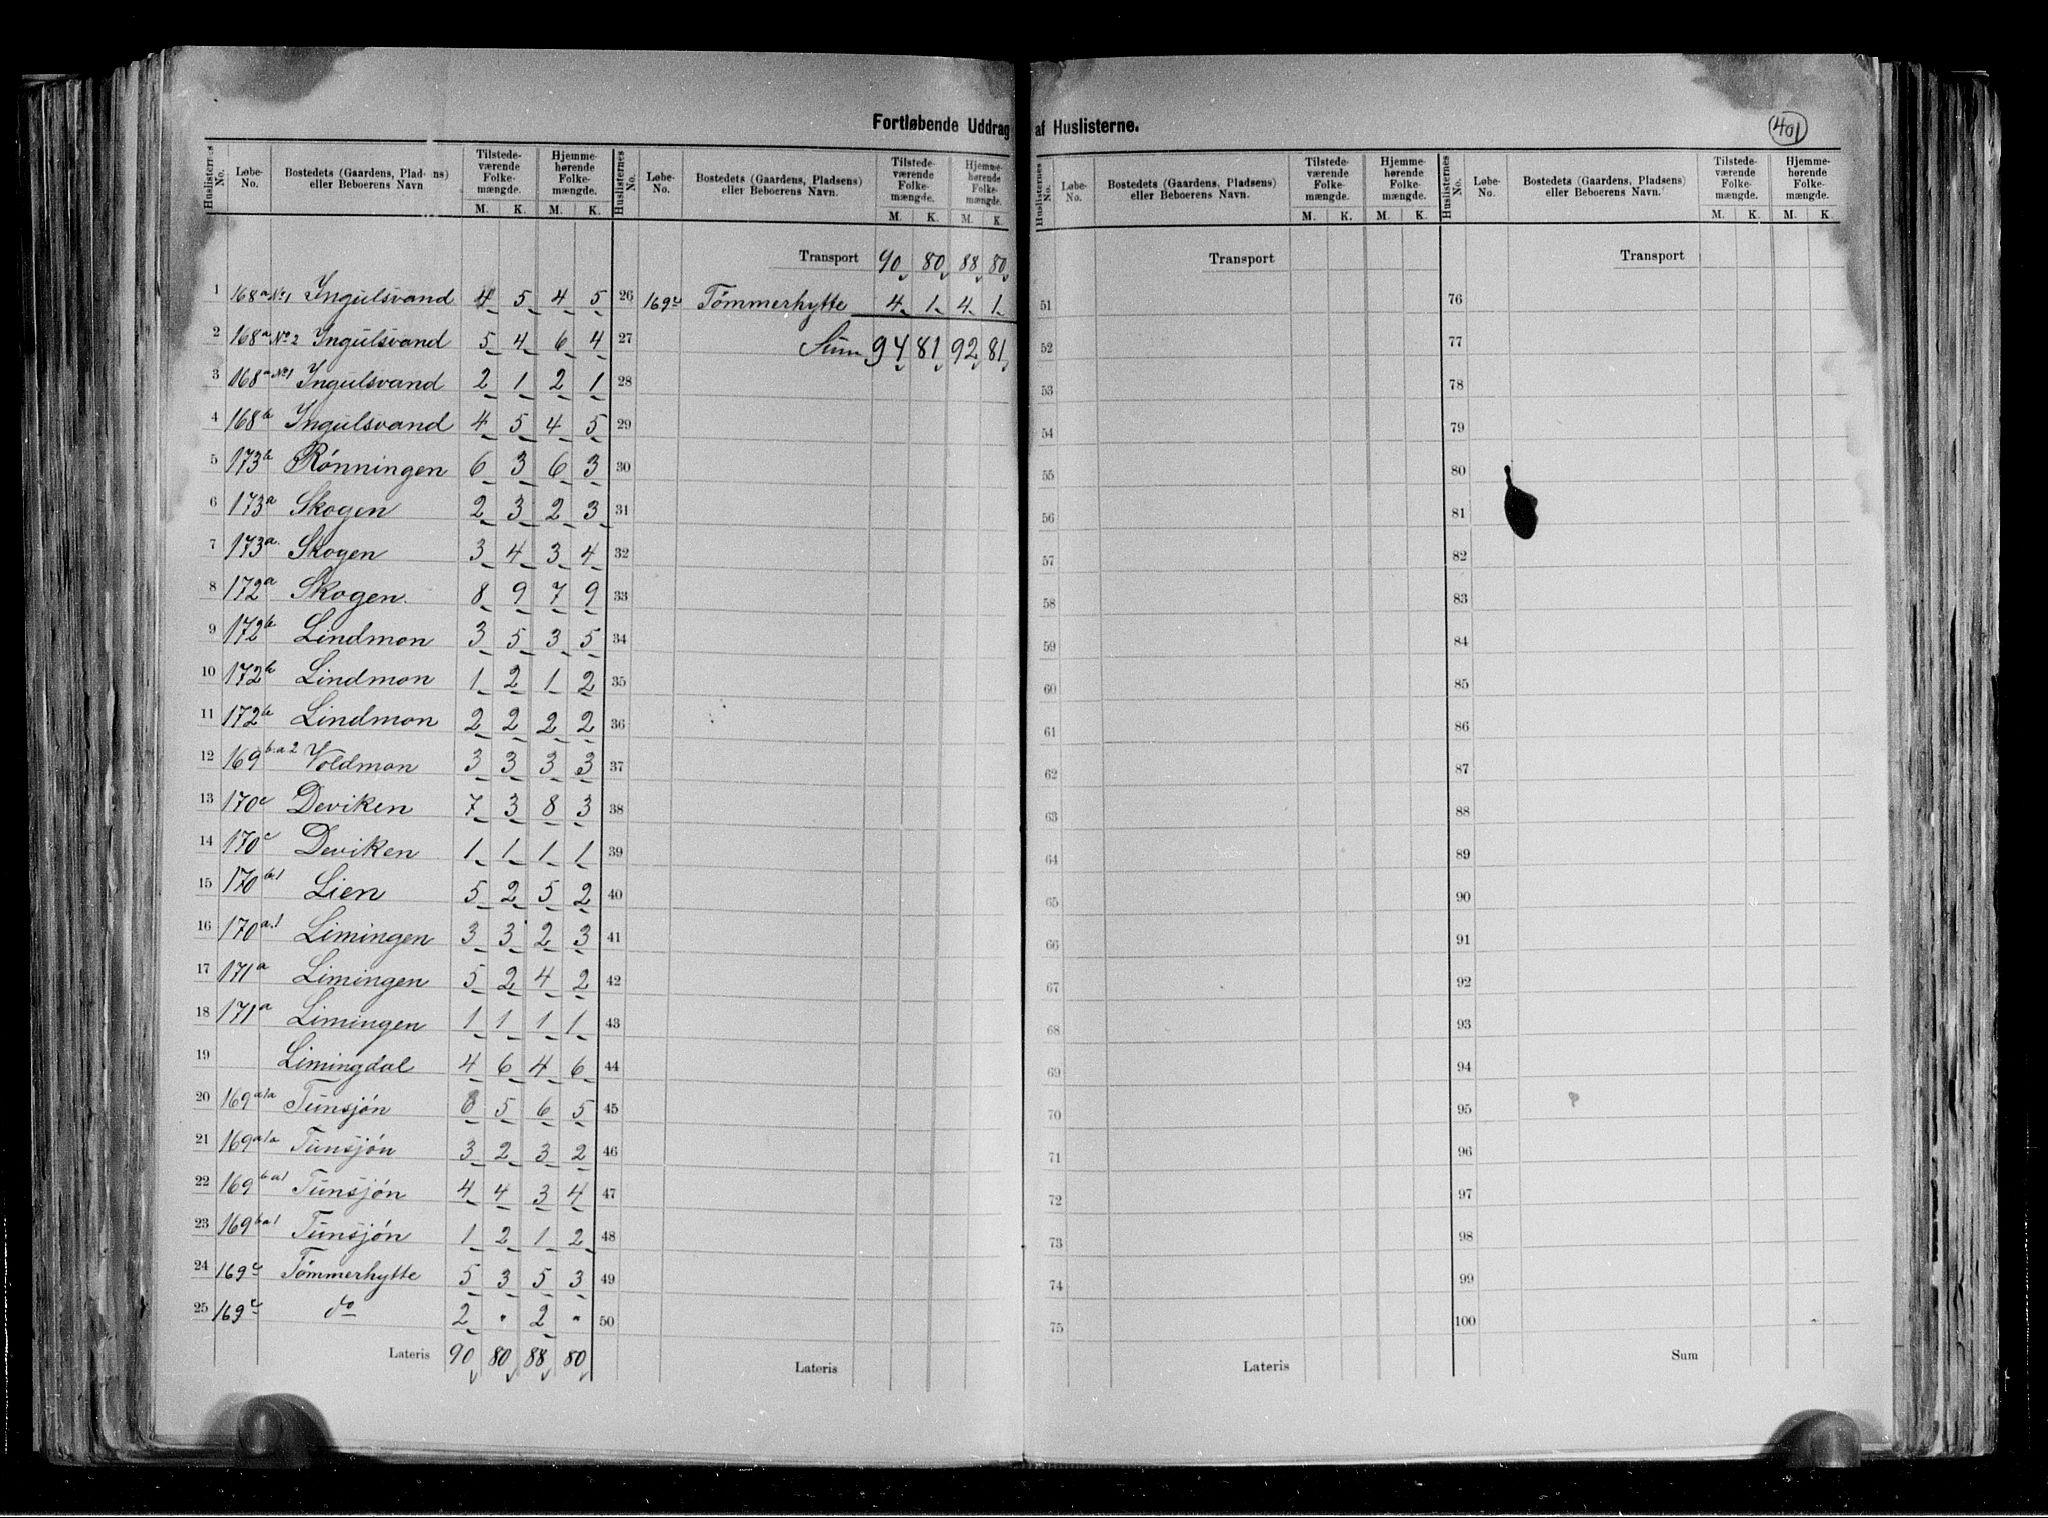 Fortløbende Uddrag af Huslisterne.
401
Huslisternes No. Løbe-No. Bostedets (Gaardens, Pladsens) eller Beboerens Navn Tilstede-værende Folke-mængde. M. K. Hjemme-hørende Folke-mængde. M. K.
1 168a No1 Ingulsvand 4 5 4 5
2 168a No2 Ingulsvand 5 4 6 4
3 168a No1 Ingulsvand 2 1 2 1
4 168b Ingulsvand 4 5 4 5
5 173b Rønningen 6 3 6 3
6 173a Skogen 2 3 2 3
7 173a. Skogen 3 4 3 4
8 172a Skogen. 8 9 7 9
9 172b Lindmon 3 5 3 5
10 172b Lindmon 1 2 1 2
11 172b Lindmon 2 2 2 2
12 169b.a2 Voldmon 3 3 3 3
13 170c Deviken 7 3 8 3
14 170c Deviken 1 1 1 1
15 170b.1 Lien 5 2 5 2
16 170a.1 Limingen 3 3 2 3
17 171a Limingen 5 2 4 2
18 171a Limingen 1 1 1 1
19 Limingdal 4 6 4 6
20 169a1a Tunsjøn 6 5 6 5
21 169a1a Tunsjøn 3 2 3 2
22 169b a1 Tunsjøn 4 4 3 4
23 169b a1 Tunsjøn 1 2 1 2
24 169c Tømmerhytte 5 3 5 3
25 169c do 2 " 2 "
Lateris 90 80 88 80
Huslisternes No. Løbe-No. Bostedets (Gaardens, Pladsens) eller Beboerens Navn. Tilstede-værende Folke-mængde. M. K. Hjemme-hørende Folke-mængde. M. K.
Transport 90 80 88 80
26 169c Tømmerhytte 4 1 4 1
27 Sum 94 81 92 81
28
29
30
31
32
33
34
35
36
37
38
39
40
41
42
43
44
45
46
47
48
49
50
Lateris
Huslisternes No. Løbe-No. Bostedets (Gaardens, Pladsens) eller Beboerens Navn. Tilstede-værende Folke-mængde. M. K. Hjemme-hørende Folke-mængde. M. K.
Transport
51
52
53
54
55
56
57
58
59
60
61
62
63
64
65
66
67
68
69
70
71
72
73
74
75
Lateris
Huslisternes No. Løbe-No. Bostedets (Gaardens, Pladsens) eller Beboerens Navn. Tilstede-værende Folke-mængde. M. K. Hjemme-hørende Folke-mængde. M. K.
Transport
76
77
78
79
80
81
82
83
84
85
86
87
88
89
90
91
92
93
94
95
96
97
98
99
100
Sum